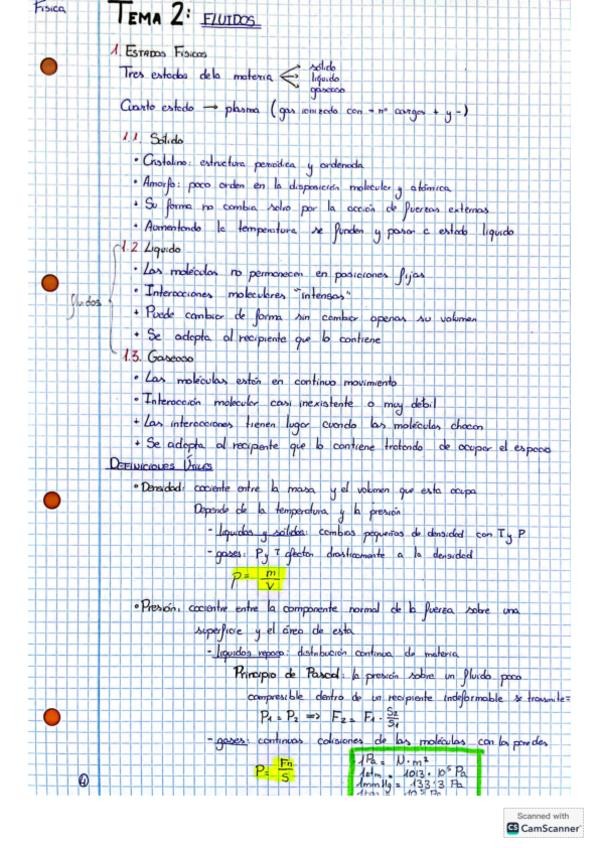 Física
TEMA 2: FLUIDOS
1. ESTADOS FÍSICOS
Tres estados de la materia
sólido
líquido
gaseoso
Cuarto estado → plasma (gas ionizado con = nº cargas + y -)
1.1 Sólido
• Cristalino: estructura periódica y ordenada
• Amorfo: poco orden en la disposición molecular y atómica
+ Su forma no cambia salvo por la acción de fuerzas externas
• Aumentando la temperatura se funden y pasan a estado líquido
fluidos
1.2 Líquido
• Las moléculas no permanecen en posiciones fijas
• Interacciones moleculares "intensas"
+ Puede cambiar de forma sin cambiar apenas su volumen
+ Se adapta al recipiente que lo contiene
1.3. Gaseoso
• Las moléculas están en continuo movimiento
• Interacción molecular casi inexistente o muy débil
+ Las interacciones tienen lugar cuando las moléculas chocan
+ Se adapta al recipiente que lo contiene tratando de ocupar el espacio
DEFINICIONES ÚTILES
• Densidad: cociente entre la masa y el volumen que esta ocupa
Depende de la temperatura y la presión
- líquidos y sólidos: cambios pequeños de densidad con T y P
- gases: P y T afectan drásticamente a la densidad
ρ = m/V
• Presión: cociente entre la componente normal de la fuerza sobre una
superficie y el área de esta
- líquidos reposo: distribución continua de materia
Principio de Pascal: la presión sobre un fluido poco
compresible dentro de un recipiente indeformable se transmite =
P₁ = P₂ => F₂ = F₁ · S₂/S₁
- gases: continuas colisiones de las moléculas con las paredes
P = Fn/S
1Pa = N·m²
1atm = 1013 · 10⁵ Pa
1mmHg = 133'3 Pa
Scanned with
CS CamScanner